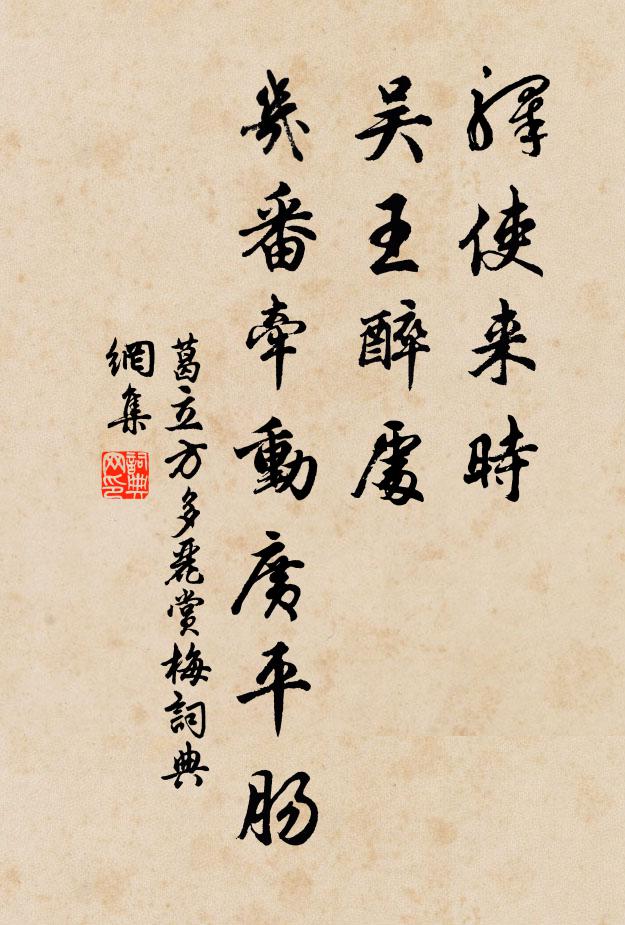 驛使来時
吴王醉處
幾番牽動廣平腸
葛立方多麗賞梅詞典
網集
詞典网印